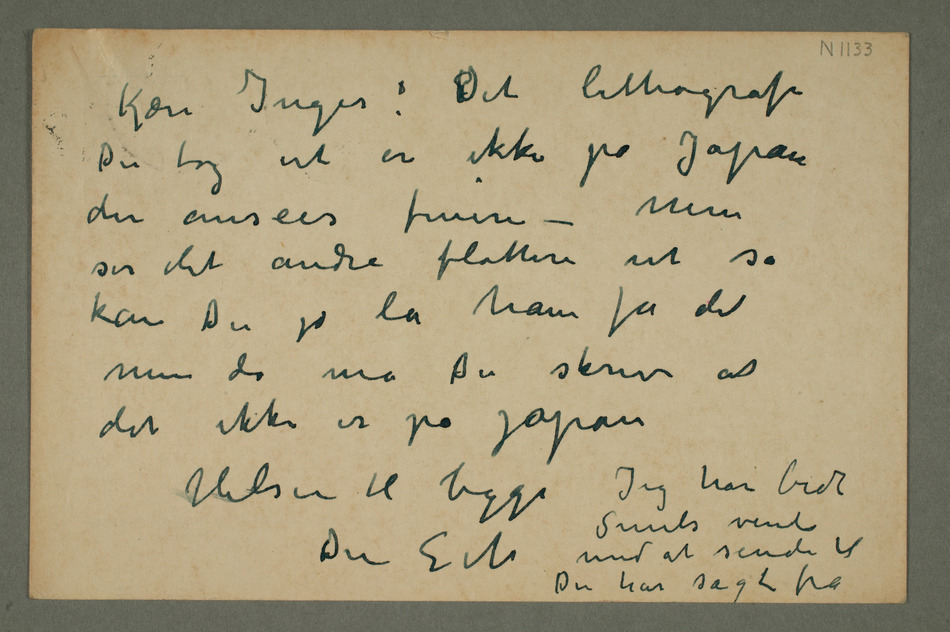 N 1133
Kjære Inger! Det lithografi
Du tog ut er ikke på Japan
der ansees finere – Men
ser det andre flottere ut så
kan Du jo la ham få det
men da må Du skrive at
det ikke er på japan
Hilsen til begge
Din E M
Jeg har bedt
vente
med at sende til
Du har sagt fra